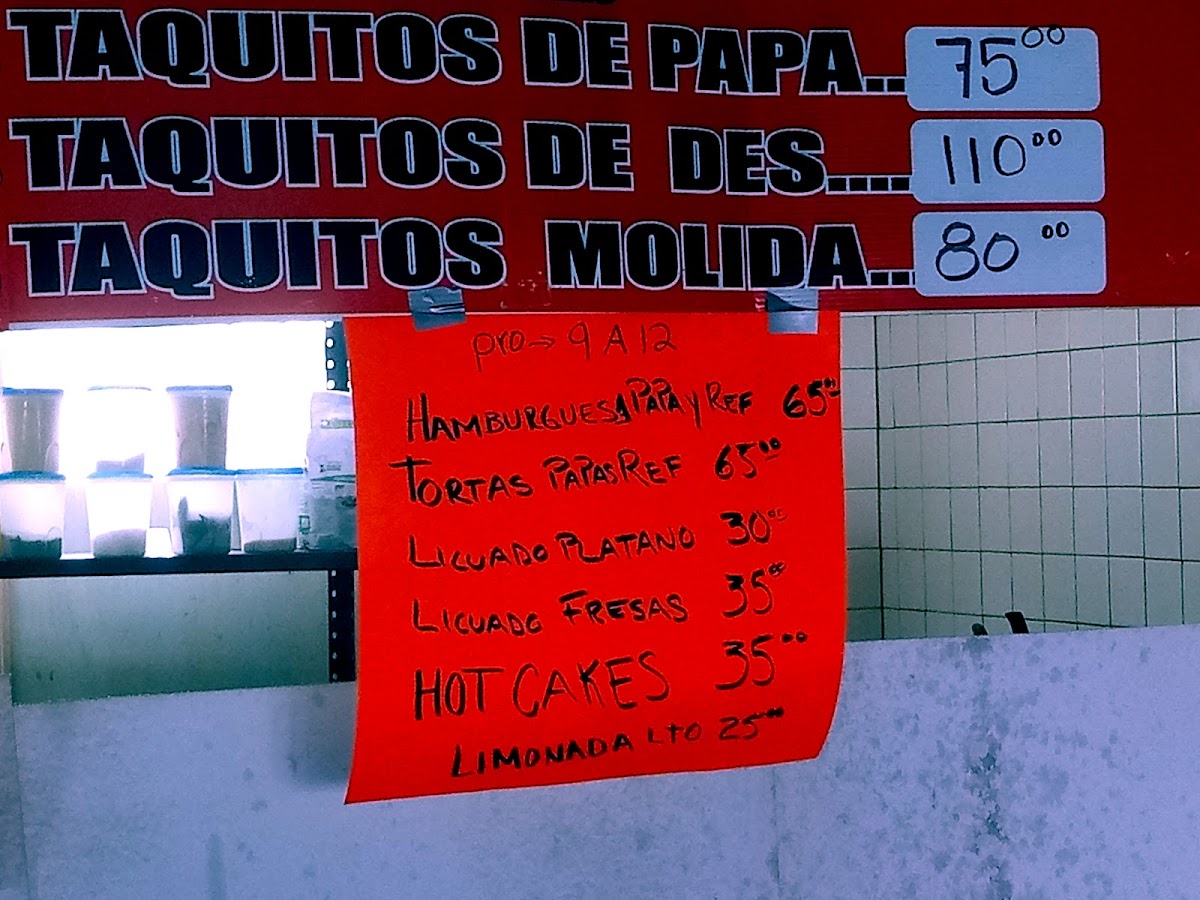 TAQUITOS DE PAPA... 75.00
TAQUITOS DE DES..... 110.00
TAQUITOS MOLIDA... 80.00
pro→ 9 A 12
HAMBURGUESA PAPA Y REF 65.00
TORTAS PAPAS REF 65.00
LICUADO PLATANO 30.00
LICUADO FRESAS 35.00
HOT CAKES 35.00
LIMONADA LTO 25.00